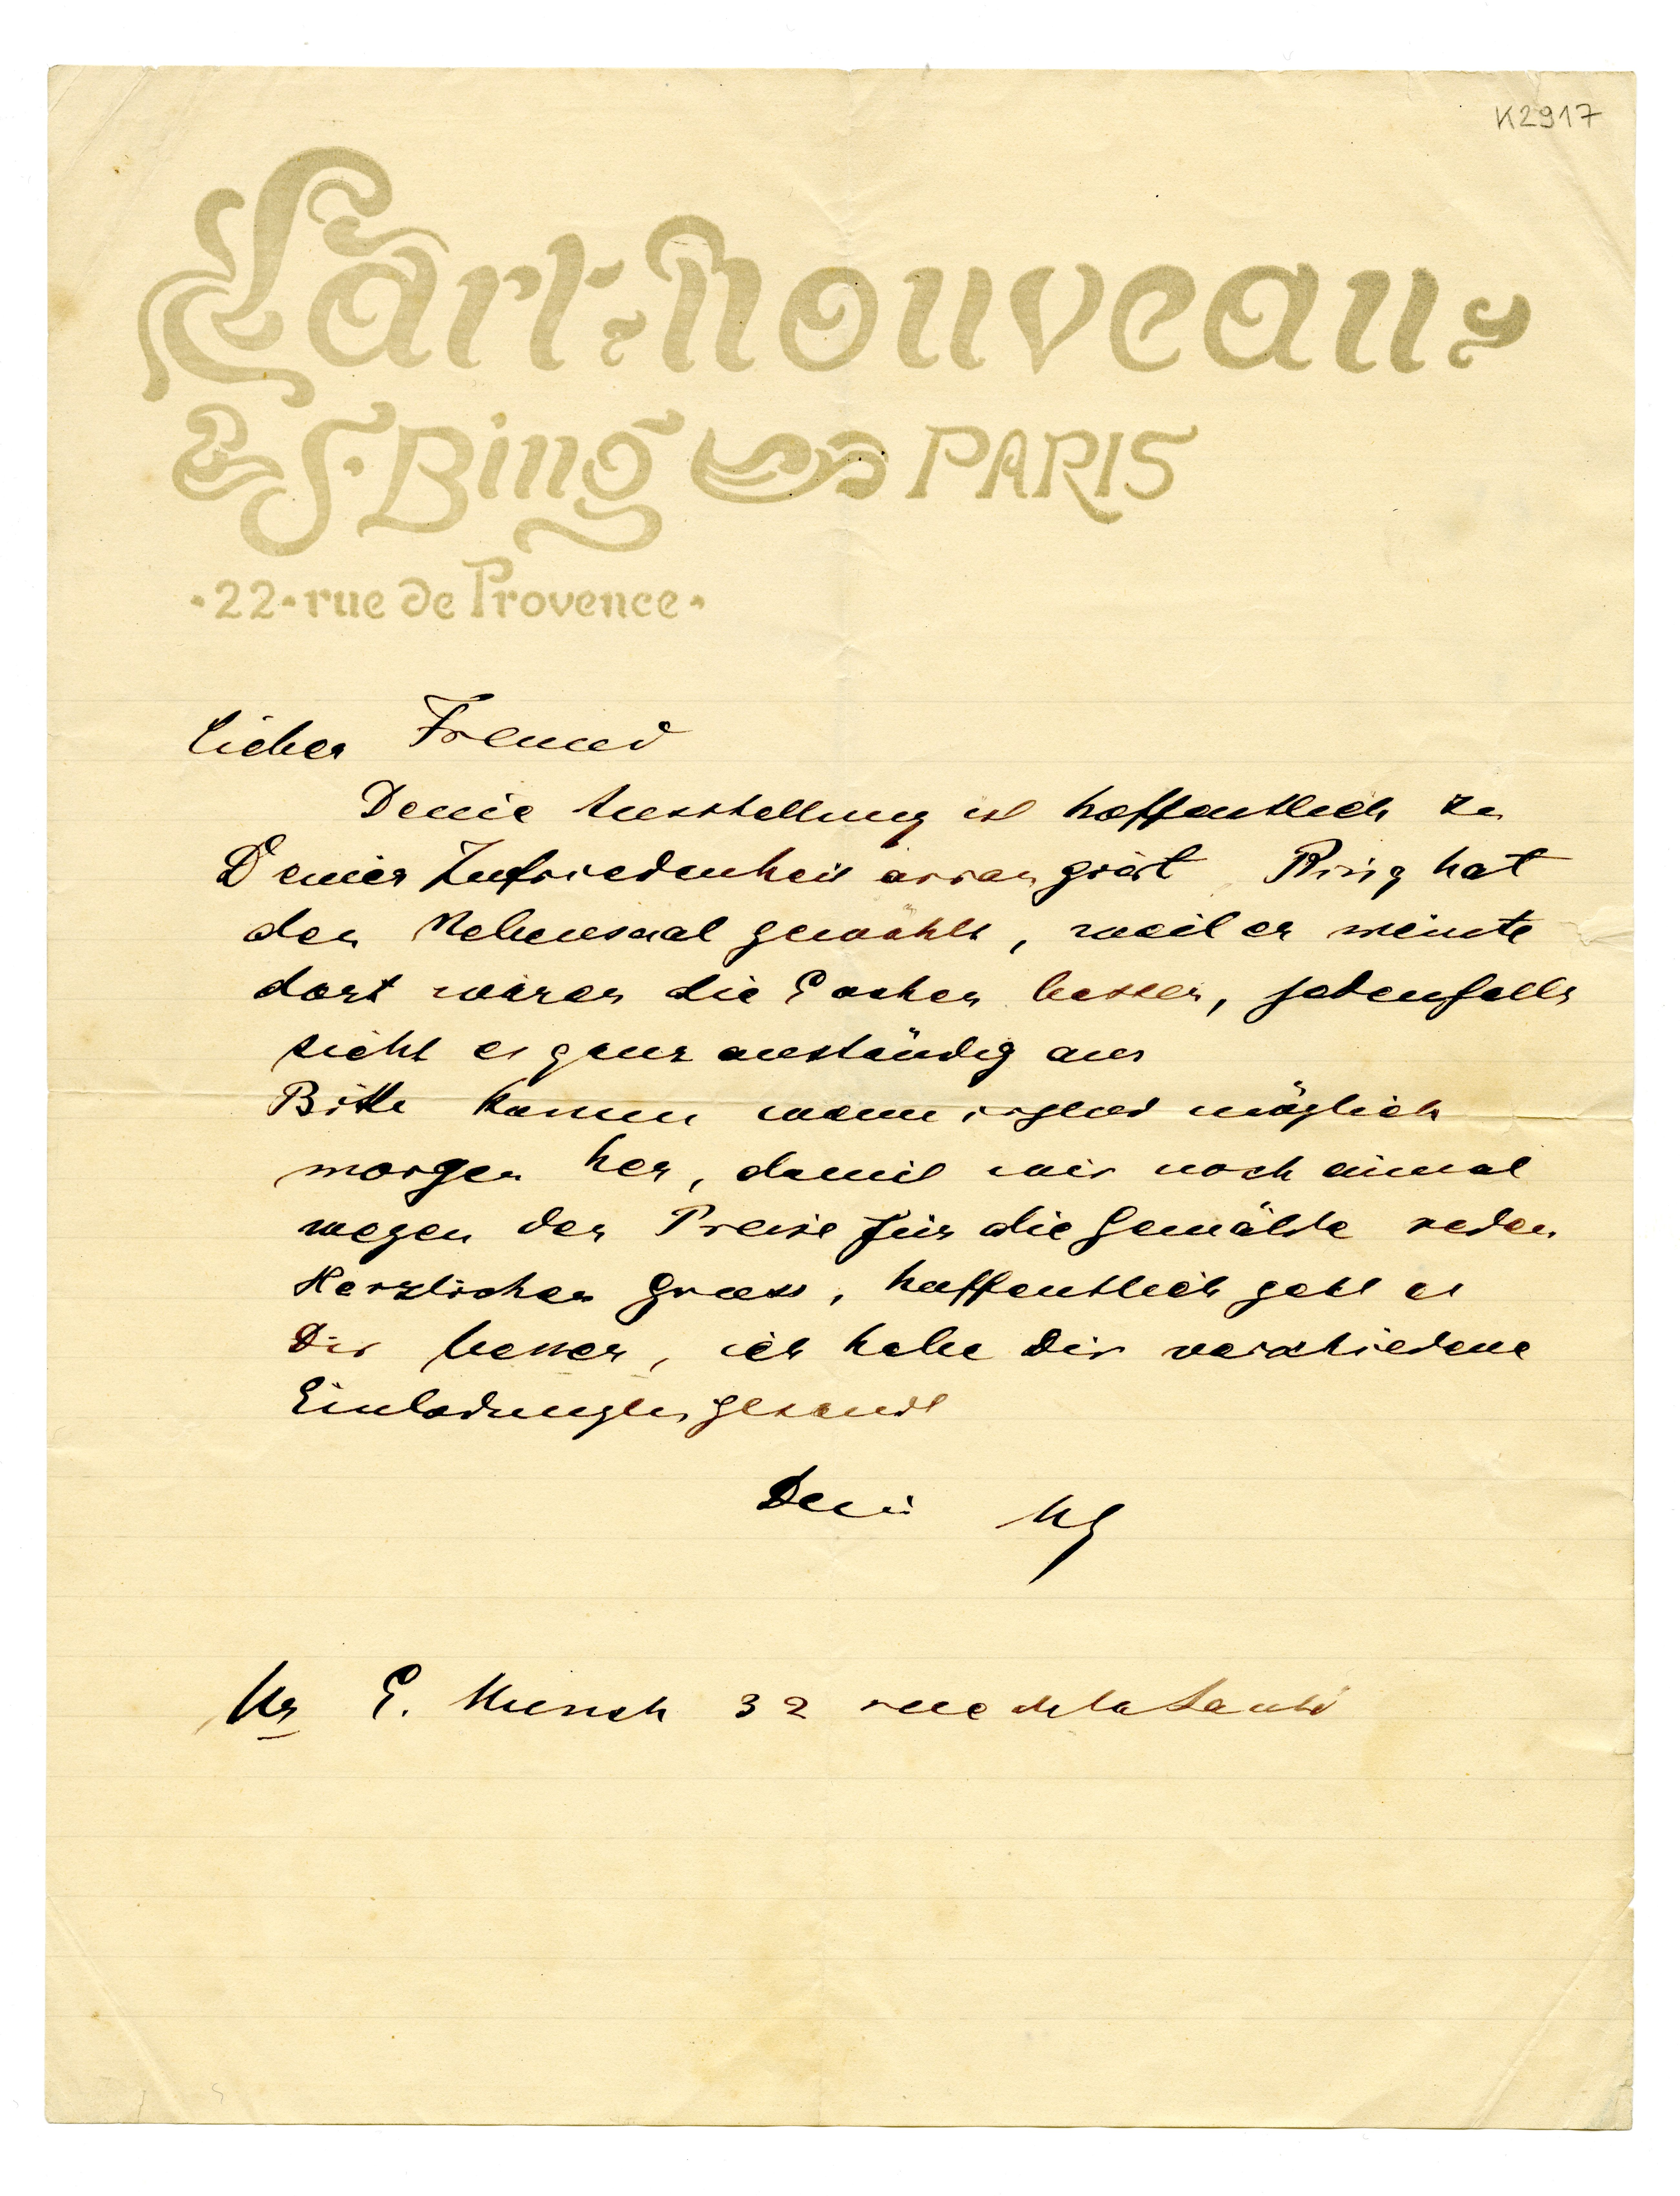 K2917
L'art Nouveau
S. Bing PARIS
22 rue de Provence
Lieber Freund
Deine Ausstellung ist hoffentlich zu
Deiner Zufriedenheit arrangiert Bing hat
den Nebensaal gewählt, weil er meinte
dort wären die Sachen besser, jedenfalls
sieht es ganz anständig aus
Bitte komm wenn irgend möglich
morgen her, damit wir noch einmal
wegen der Preise für die Gemälde reden
Herzlichen Gruss, hoffentlich geht es
Dir besser, ich habe Dir verschiedene
Einladungen gesandt
Dein
Mr E. Munch 32 rue de la Santé